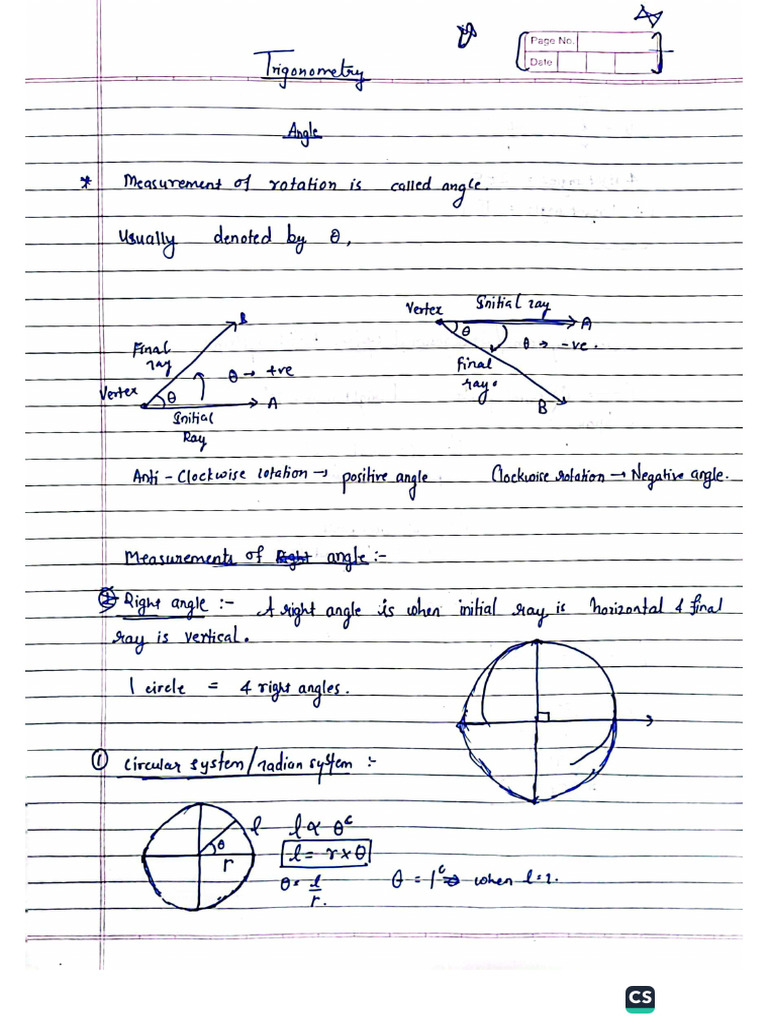 Page No.
Date
Trigonometry
Angle
* Measurement of rotation is called angle.
Usually denoted by θ,
B
Final ray
θ → +ve
Vertex
θ
A
Initial Ray
Vertex
Initial ray
A
θ
θ → -ve.
Final ray.
B
Anti-Clockwise rotation → positive angle
Clockwise rotation → Negative angle.
Measurements of angle :-
Right angle :- A right angle is when initial ray is horizontal & final
ray is vertical.
1 circle = 4 right angles.
① Circular system/radian system :-
l
θ
r
l ∝ θᶜ
l = r×θ
θ = l/r.
θ = 1ᶜ ⇒ when l=r.
CS